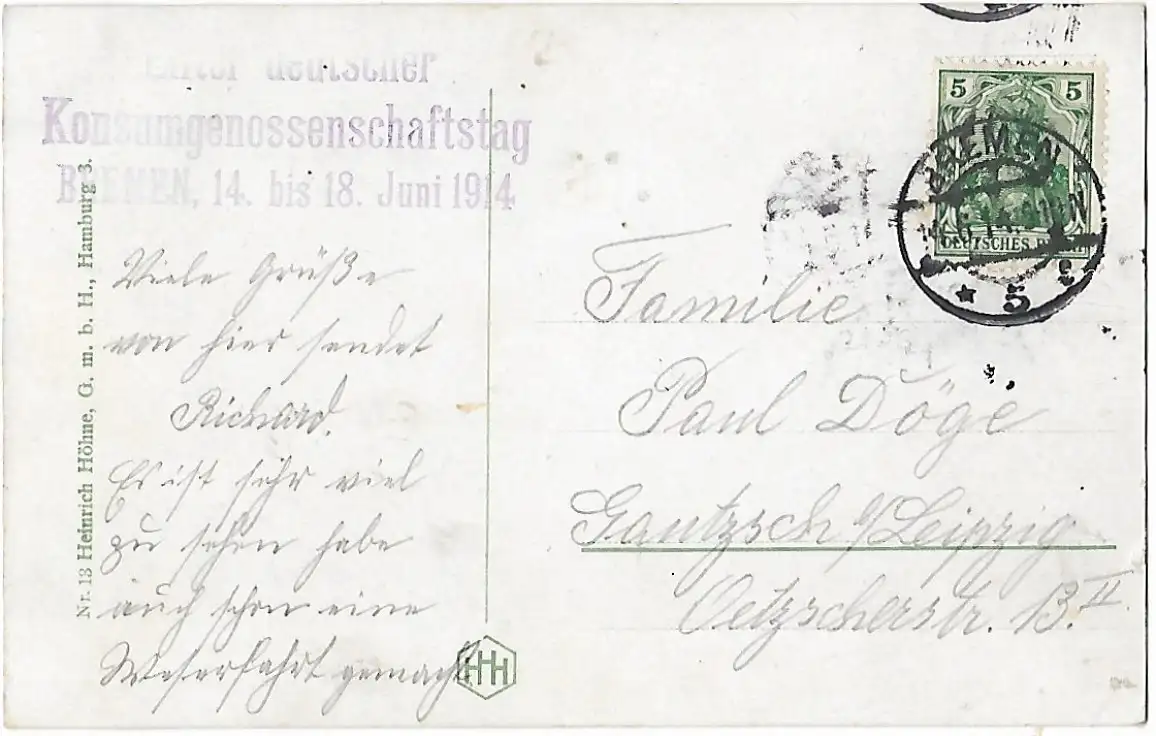 Elfter deutscher
Konsumgenossenschaftstag
BREMEN, 14. bis 18. Juni 1914
Nr. 13 Heinrich Höhne, G. m. b. H., Hamburg 3.
Viele Grüße
von hier sendet
Richard.
Es ist sehr viel
zu sehen habe
auch schon eine
Weserfahrt gemacht.
HHH
5 5
DEUTSCHES REICH
BREMEN
* 5 c
Familie
Paul Döge
Gautzsch b/Leipzig
Oetzscherstr. 13.II.